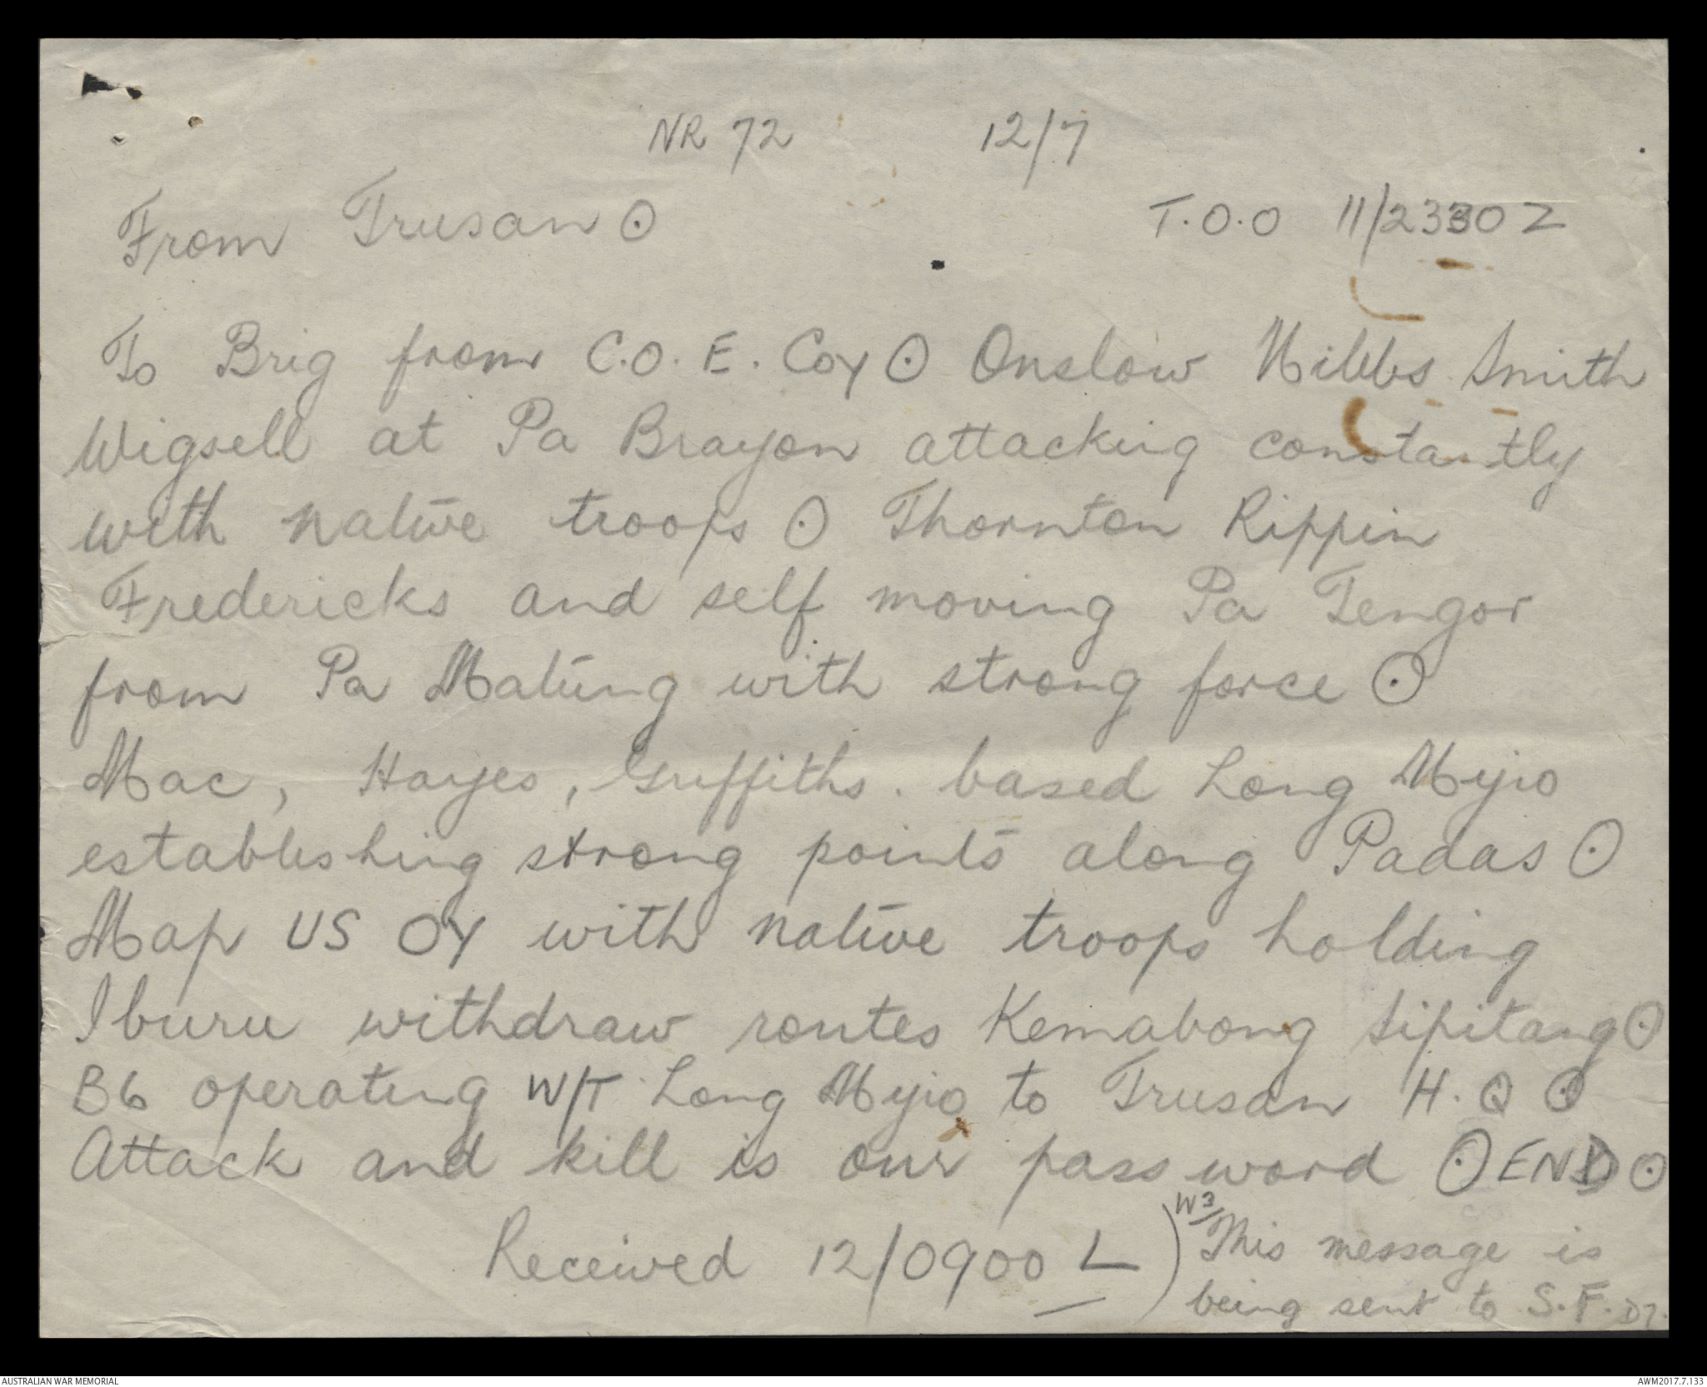 NR 72 12/7
From Trusan ⊙ T.O.O 11/2330 Z
To Brig from C.O. E. Coy ⊙ Onslow Nibbs Smith
Wigsell at Pa Brayon attacking constantly
with native troops ⊙ Thornton Rippin
Fredericks and self moving Pa Tengor
from Pa Matung with strong force ⊙
Mac, Hayes, Griffiths. based Long Myio
establishing strong points along Padas ⊙
Map US OY with native troops holding
Iburu withdraw routes Kemabong Sipitang ⊙
B6 operating W/T Long Myio to Trusan H.Q ⊙
Attack and kill is our pass word ⊙ END ⊙
Received 12/0900 L
W3
) This message is
being sent to S.F.
AUSTRALIAN WAR MEMORIAL AWM2017.7.133